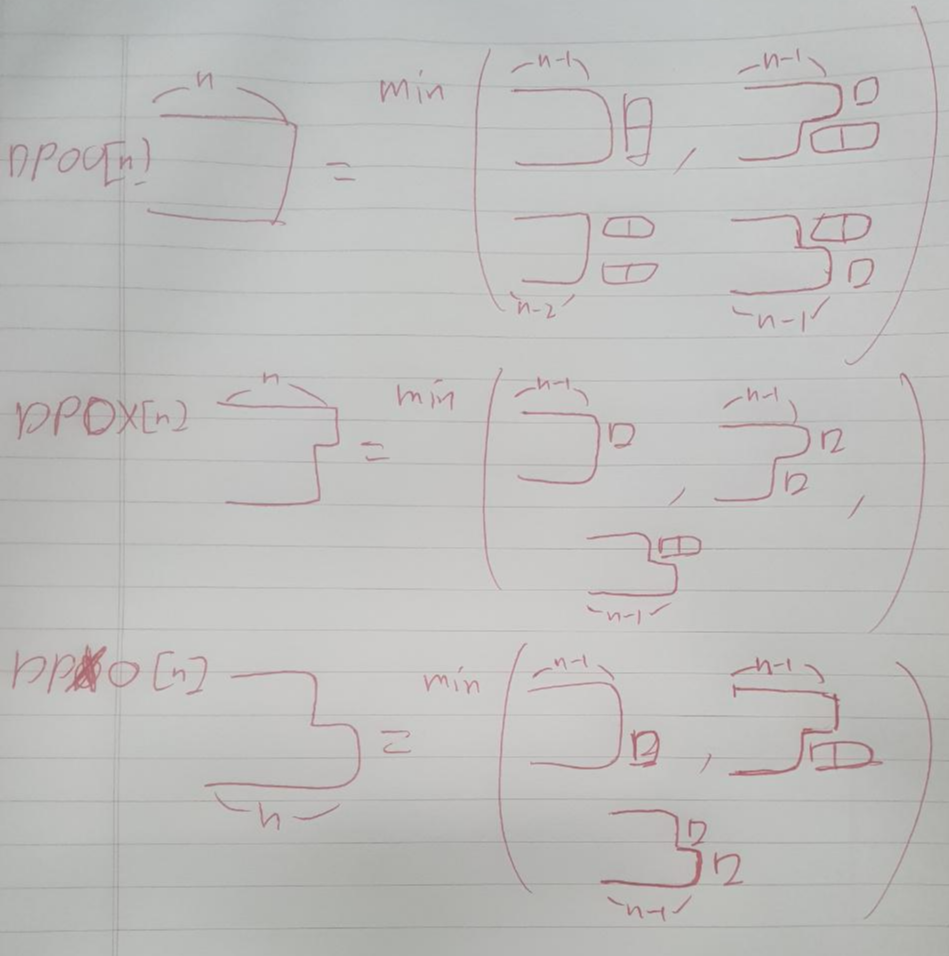 n
min
n-1
n-1
DPOO[n]
=
,
n-2
n-1
n
min
n-1
n-1
DPOX[n]
=
,
,
n-1
DPXO[n]
min
n-1
n-1
=
,
n
n-1